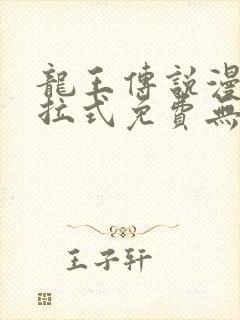 龍王傳說漫
拉式免費無
王子軒